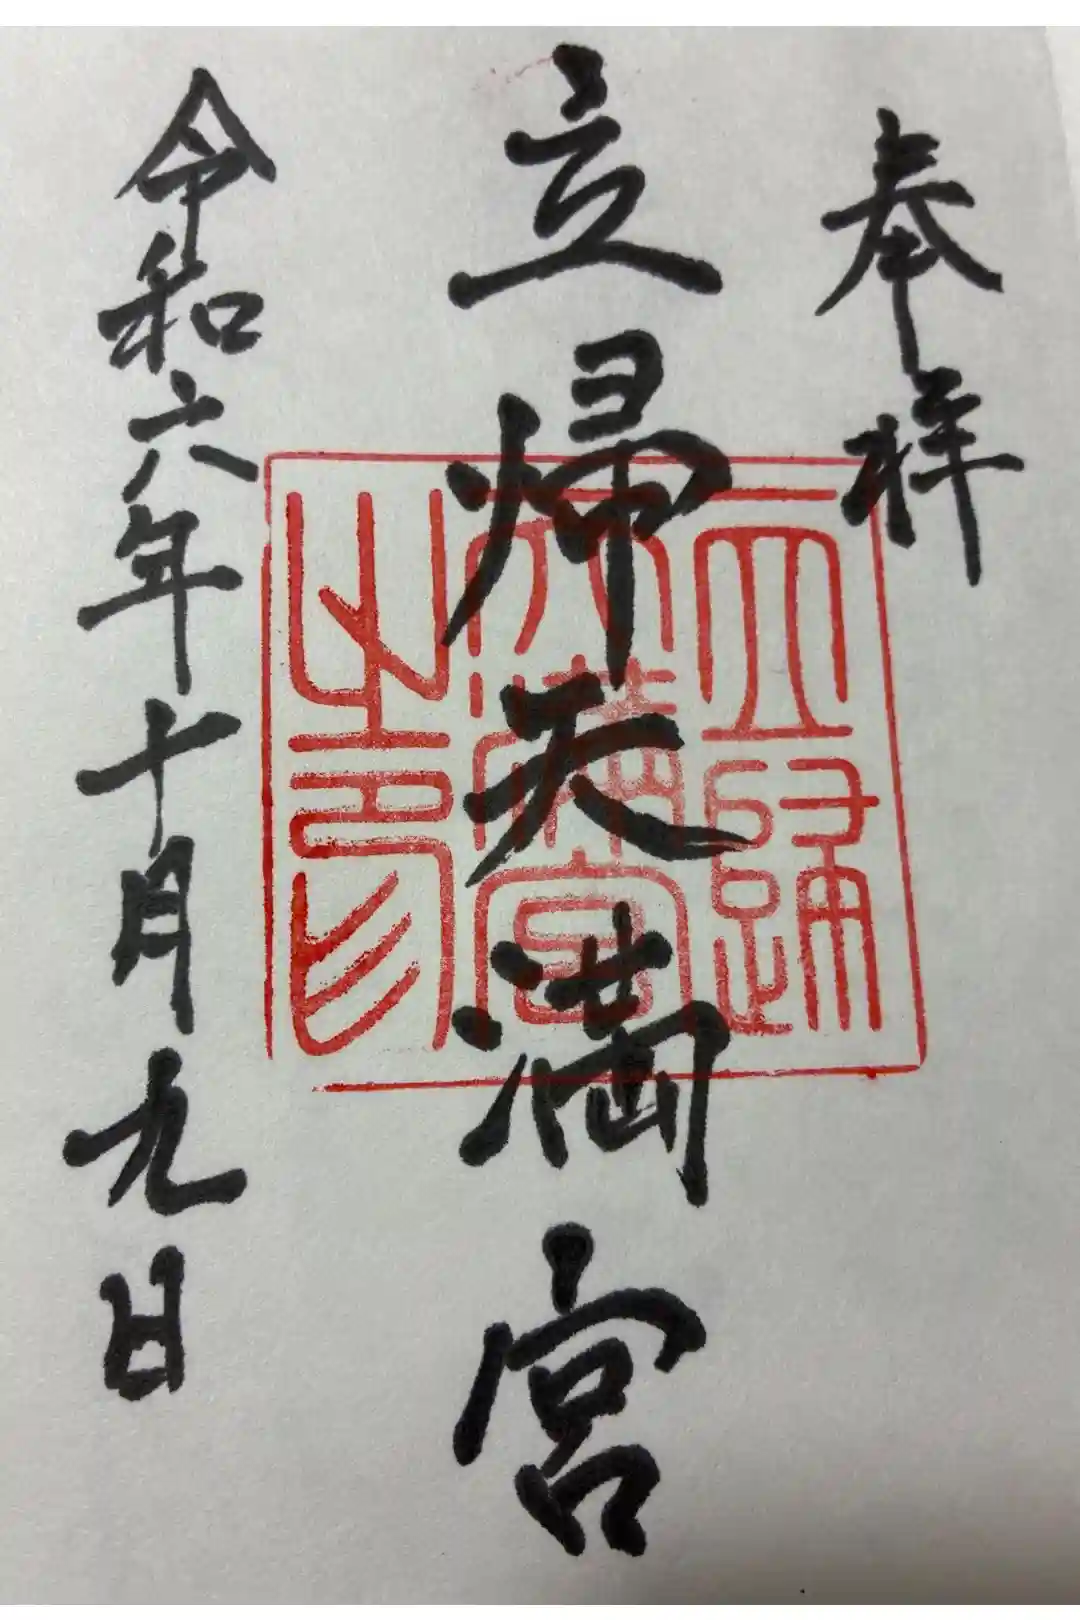 奉拝
立帰天満宮
令和六年十月九日
立歸
天滿宮
之印